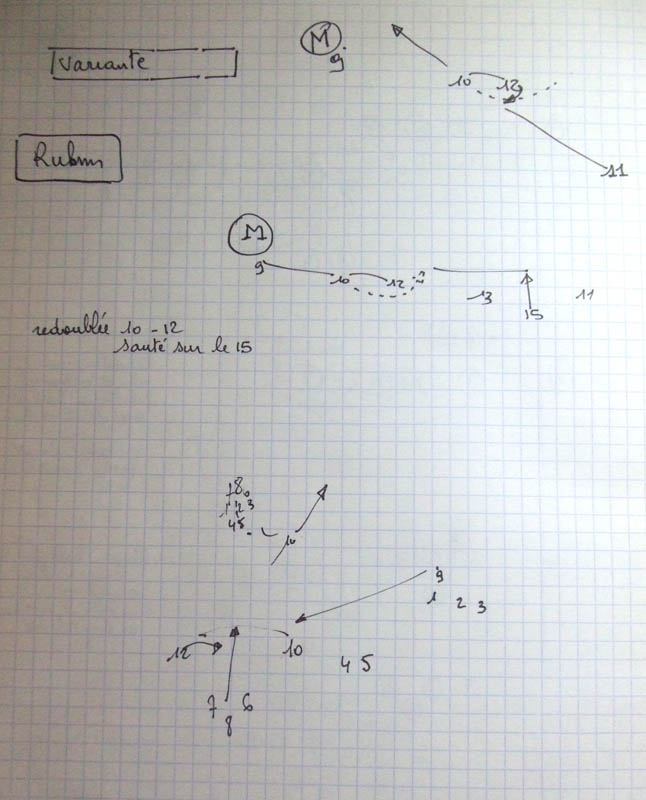 Variante
M
9
10 12
11
M
9
10 12
13
15
11
redoublée 10-12
sauté sur le 15
10
9
1 2 3
12
10
4 5
7 6
8